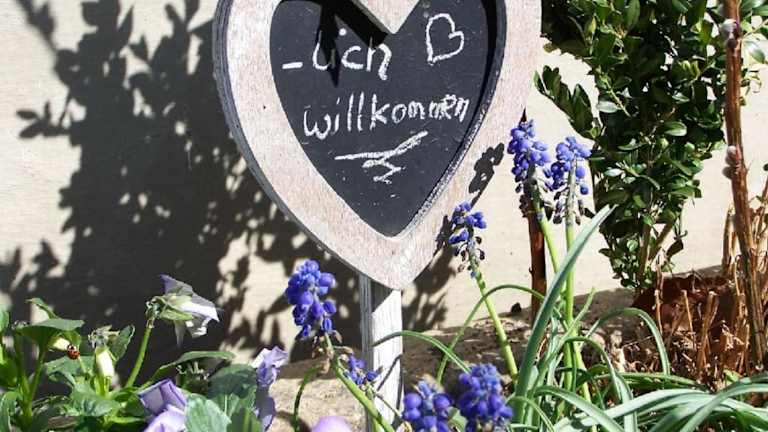 -lich
willkommen